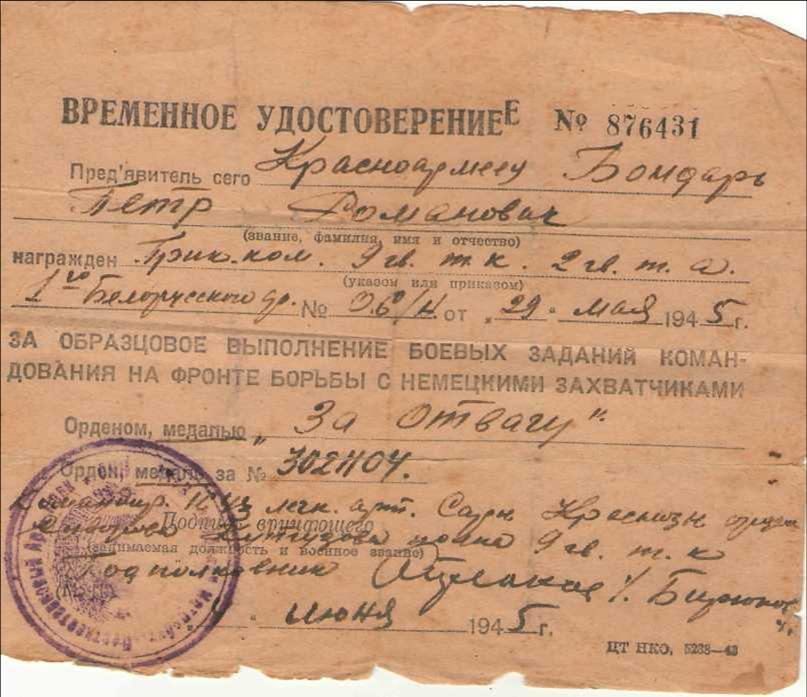 ВРЕМЕННОЕ УДОСТОВЕРЕНИЕ Е № 876431
Пред'явитель сего Красноармеец Бондарь
Петр Романович
(звание, фамилия, имя и отчество)
награжден Прик. ком. 9 гв. т. к. 2 гв. т. а.
(указом или приказом)
1го Белорусского фр. № 06/Н от „29" мая 1945 г.
ЗА ОБРАЗЦОВОЕ ВЫПОЛНЕНИЕ БОЕВЫХ ЗАДАНИЙ КОМАН-
ДОВАНИЯ НА ФРОНТЕ БОРЬБЫ С НЕМЕЦКИМИ ЗАХВАТЧИКАМИ
Орденом, медалью „За отвагу"
Орден, медаль за № 3021104.
Командир легк. арт.
Подпись вручающего
Кутузова полка 9 гв. т. к
(занимаемая должность и военное звание)
Подполковник
июня 1945 г.
ЦТ НКО, 5238—43